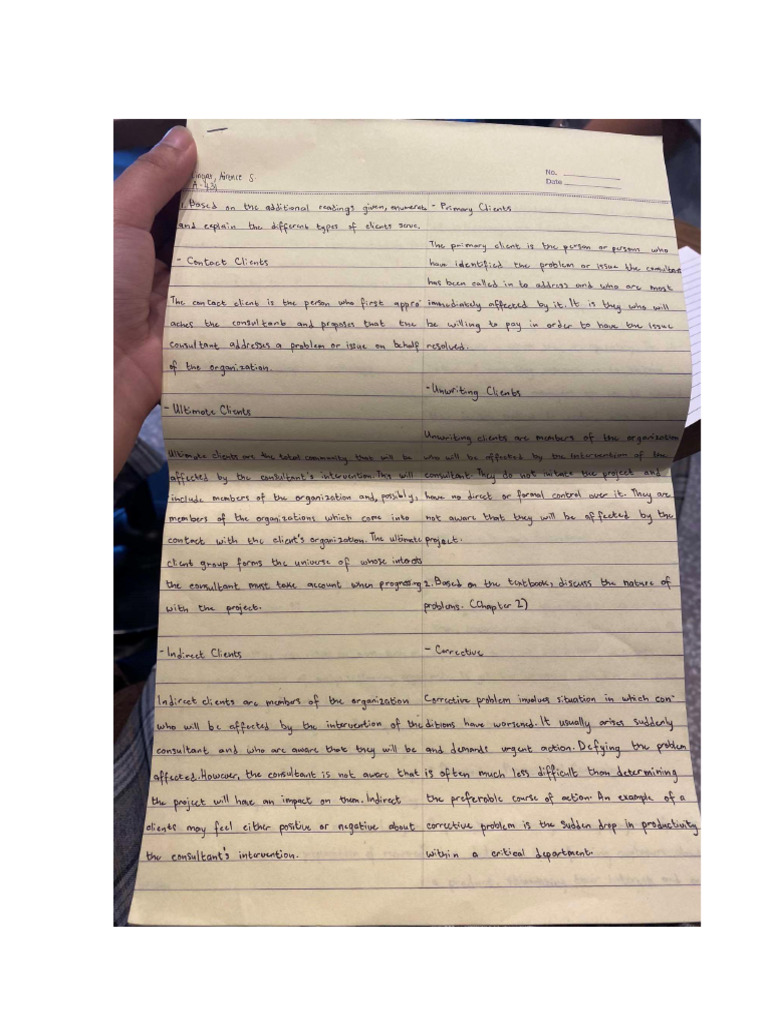 Airence S.
A-431
No.
Date
1. Based on the additional readings given, enumerate
and explain the different types of clients serve.
- Contact Clients
The contact client is the person who first appro
aches the consultant and proposes that the
consultant addresses a problem or issue on behalf
of the organization.
- Ultimate Clients
Ultimate clients are the total community that will be
affected by the consultant's intervention. This will
include members of the organization and, possibly,
members of the organizations which come into
contact with the client's organization. The ultimate
client group forms the universe of whose interests
the consultant must take account when progressing
with the project.
- Indirect Clients
Indirect clients are members of the organization
who will be affected by the intervention of the
consultant and who are aware that they will be
affected. However, the consultant is not aware that
the project will have an impact on them. Indirect
clients may feel either positive or negative about
the consultant's intervention.
- Primary Clients
The primary client is the person or persons who
have identified the problem or issue the consultant
has been called in to address and who are most
immediately affected by it. It is they who will
be willing to pay in order to have the issue
resolved.
- Unwriting Clients
Unwriting clients are members of the organization
who will be affected by the intervention of the
consultant. They do not initate the project and
have no direct or formal control over it. They are
not aware that they will be affected by the
project.
2. Based on the textbook, discuss the nature of
problems. (Chapter 2)
- Corrective
Corrective problem involves situation in which con-
ditions have worsened. It usually arises suddenly
and demands urgent action. Defying the problem
is often much less difficult than determining
the preferable course of action. An example of a
corrective problem is the sudden drop in productivity
within a critical department.